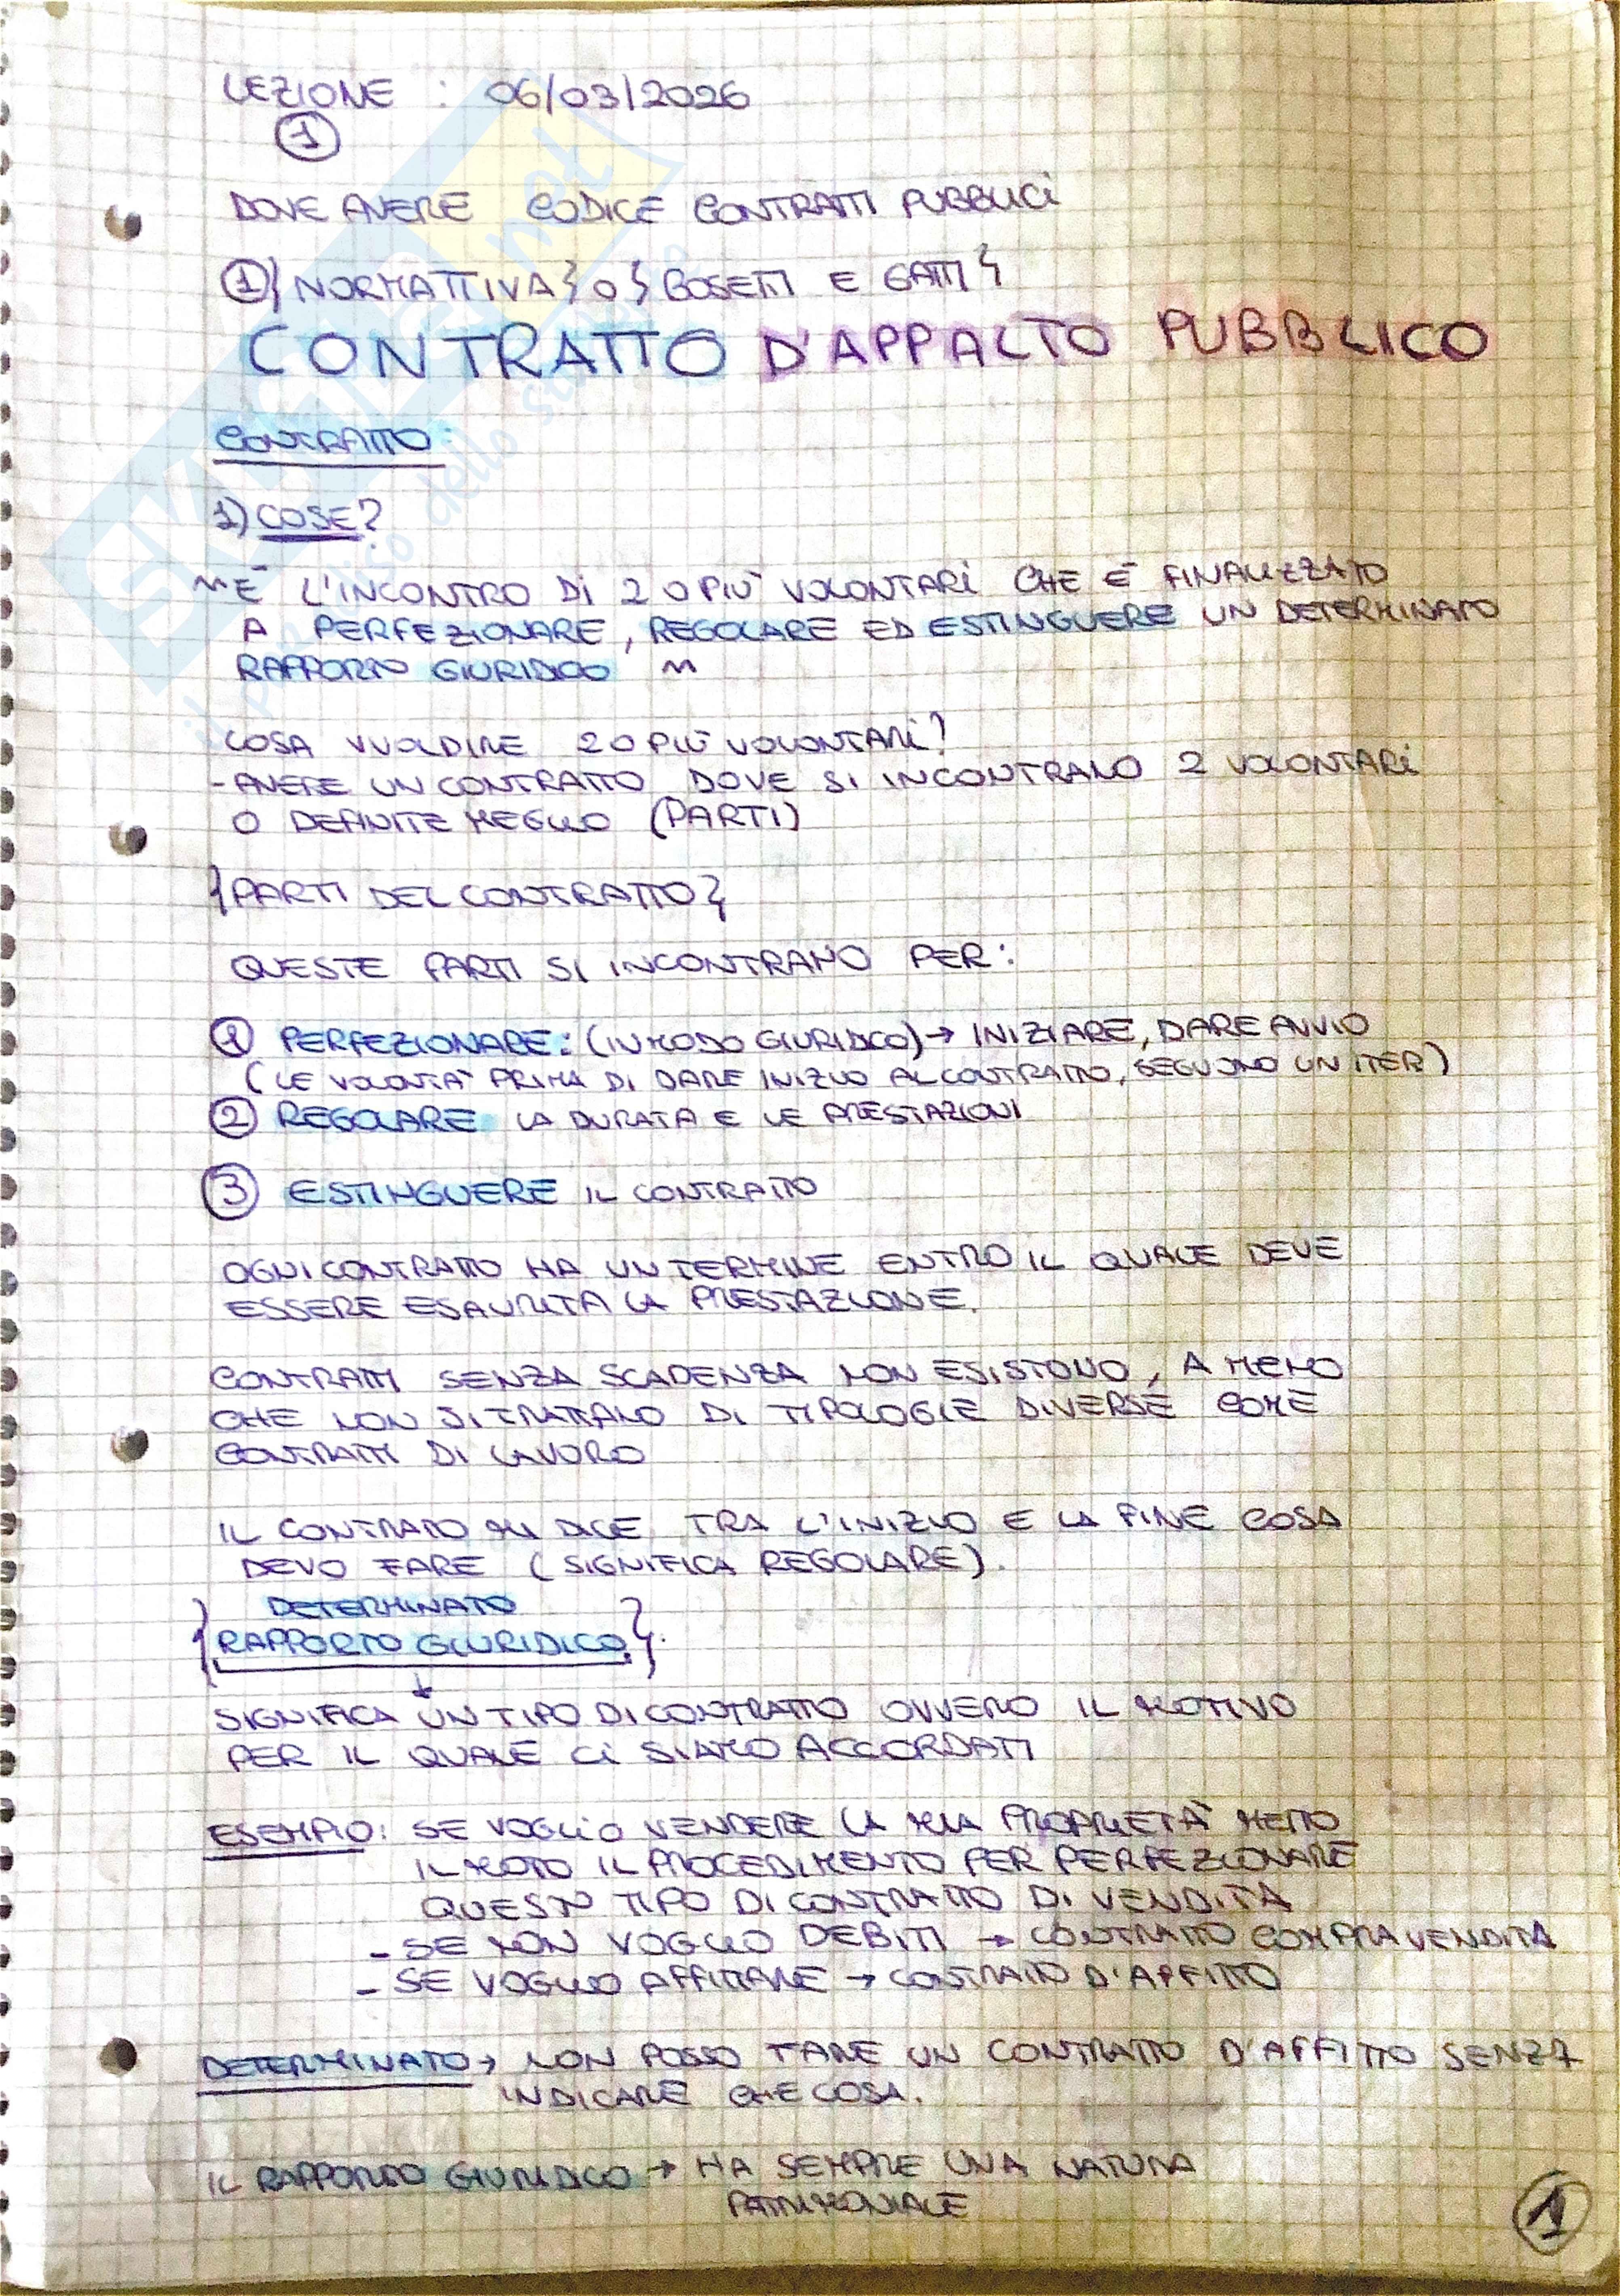 LEZIONE : 06/03/2026
1
DOVE AVERE CODICE CONTRATTI PUBBLICI
1} NORMATTIVA} O } BOSETTI E GATTI }
CONTRATTO D'APPALTO PUBBLICO
CONTRATTO:
1) COSE?
~ È L'INCONTRO DI 2 O PIÙ VOLONTARI CHE È FINALIZZATO
A PERFEZIONARE, REGOLARE ED ESTINGUERE UN DETERMINATO
RAPPORTO GIURIDICO ~
COSA VUOL DIRE 2 O PIÙ VOLONTARI?
- AVERE UN CONTRATTO DOVE SI INCONTRANO 2 VOLONTARI
O DEFINITE MEGLIO (PARTI)
{PARTI DEL CONTRATTO}
QUESTE PARTI SI INCONTRANO PER:
1 PERFEZIONARE: (IN MODO GIURIDICO) → INIZIARE, DARE AVVIO
(LE VOLONTÀ PRIMA DI DARE INIZIO AL CONTRATTO, SEGUONO UN ITER)
2 REGOLARE LA DURATA E LE PRESTAZIONI
3 ESTINGUERE IL CONTRATTO
OGNI CONTRATTO HA UN TERMINE ENTRO IL QUALE DEVE
ESSERE ESAURITA LA PRESTAZIONE.
CONTRATTI SENZA SCADENZA NON ESISTONO, A MENO
CHE NON SI TRATTANO DI TIPOLOGIE DIVERSE COME
CONTRATTI DI LAVORO
IL CONTRATTO MI DICE TRA L'INIZIO E LA FINE COSA
DEVO FARE (SIGNIFICA REGOLARE).
DETERMINATO
{RAPPORTO GIURIDICO}.
SIGNIFICA UN TIPO DI CONTRATTO OVVERO IL MOTIVO
PER IL QUALE CI SIAMO ACCORDATI
ESEMPIO: SE VOGLIO VENDERE LA MIA PROPRIETÀ METTO
IL MOTO IL PROCEDIMENTO PER PERFEZIONARE
QUESTO TIPO DI CONTRATTO DI VENDITA
- SE NON VOGLIO DEBITI → CONTRATTO COMPRAVENDITA
- SE VOGLIO AFFITTARE → CONTRATTO D'AFFITTO
DETERMINATO → NON POSSO FARE UN CONTRATTO D'AFFITTO SENZA
INDICARE CHE COSA.
IL RAPPORTO GIURIDICO → HA SEMPRE UNA NATURA
PATRIMONIALE
1
SKUOLA.net
il paradiso dello studente